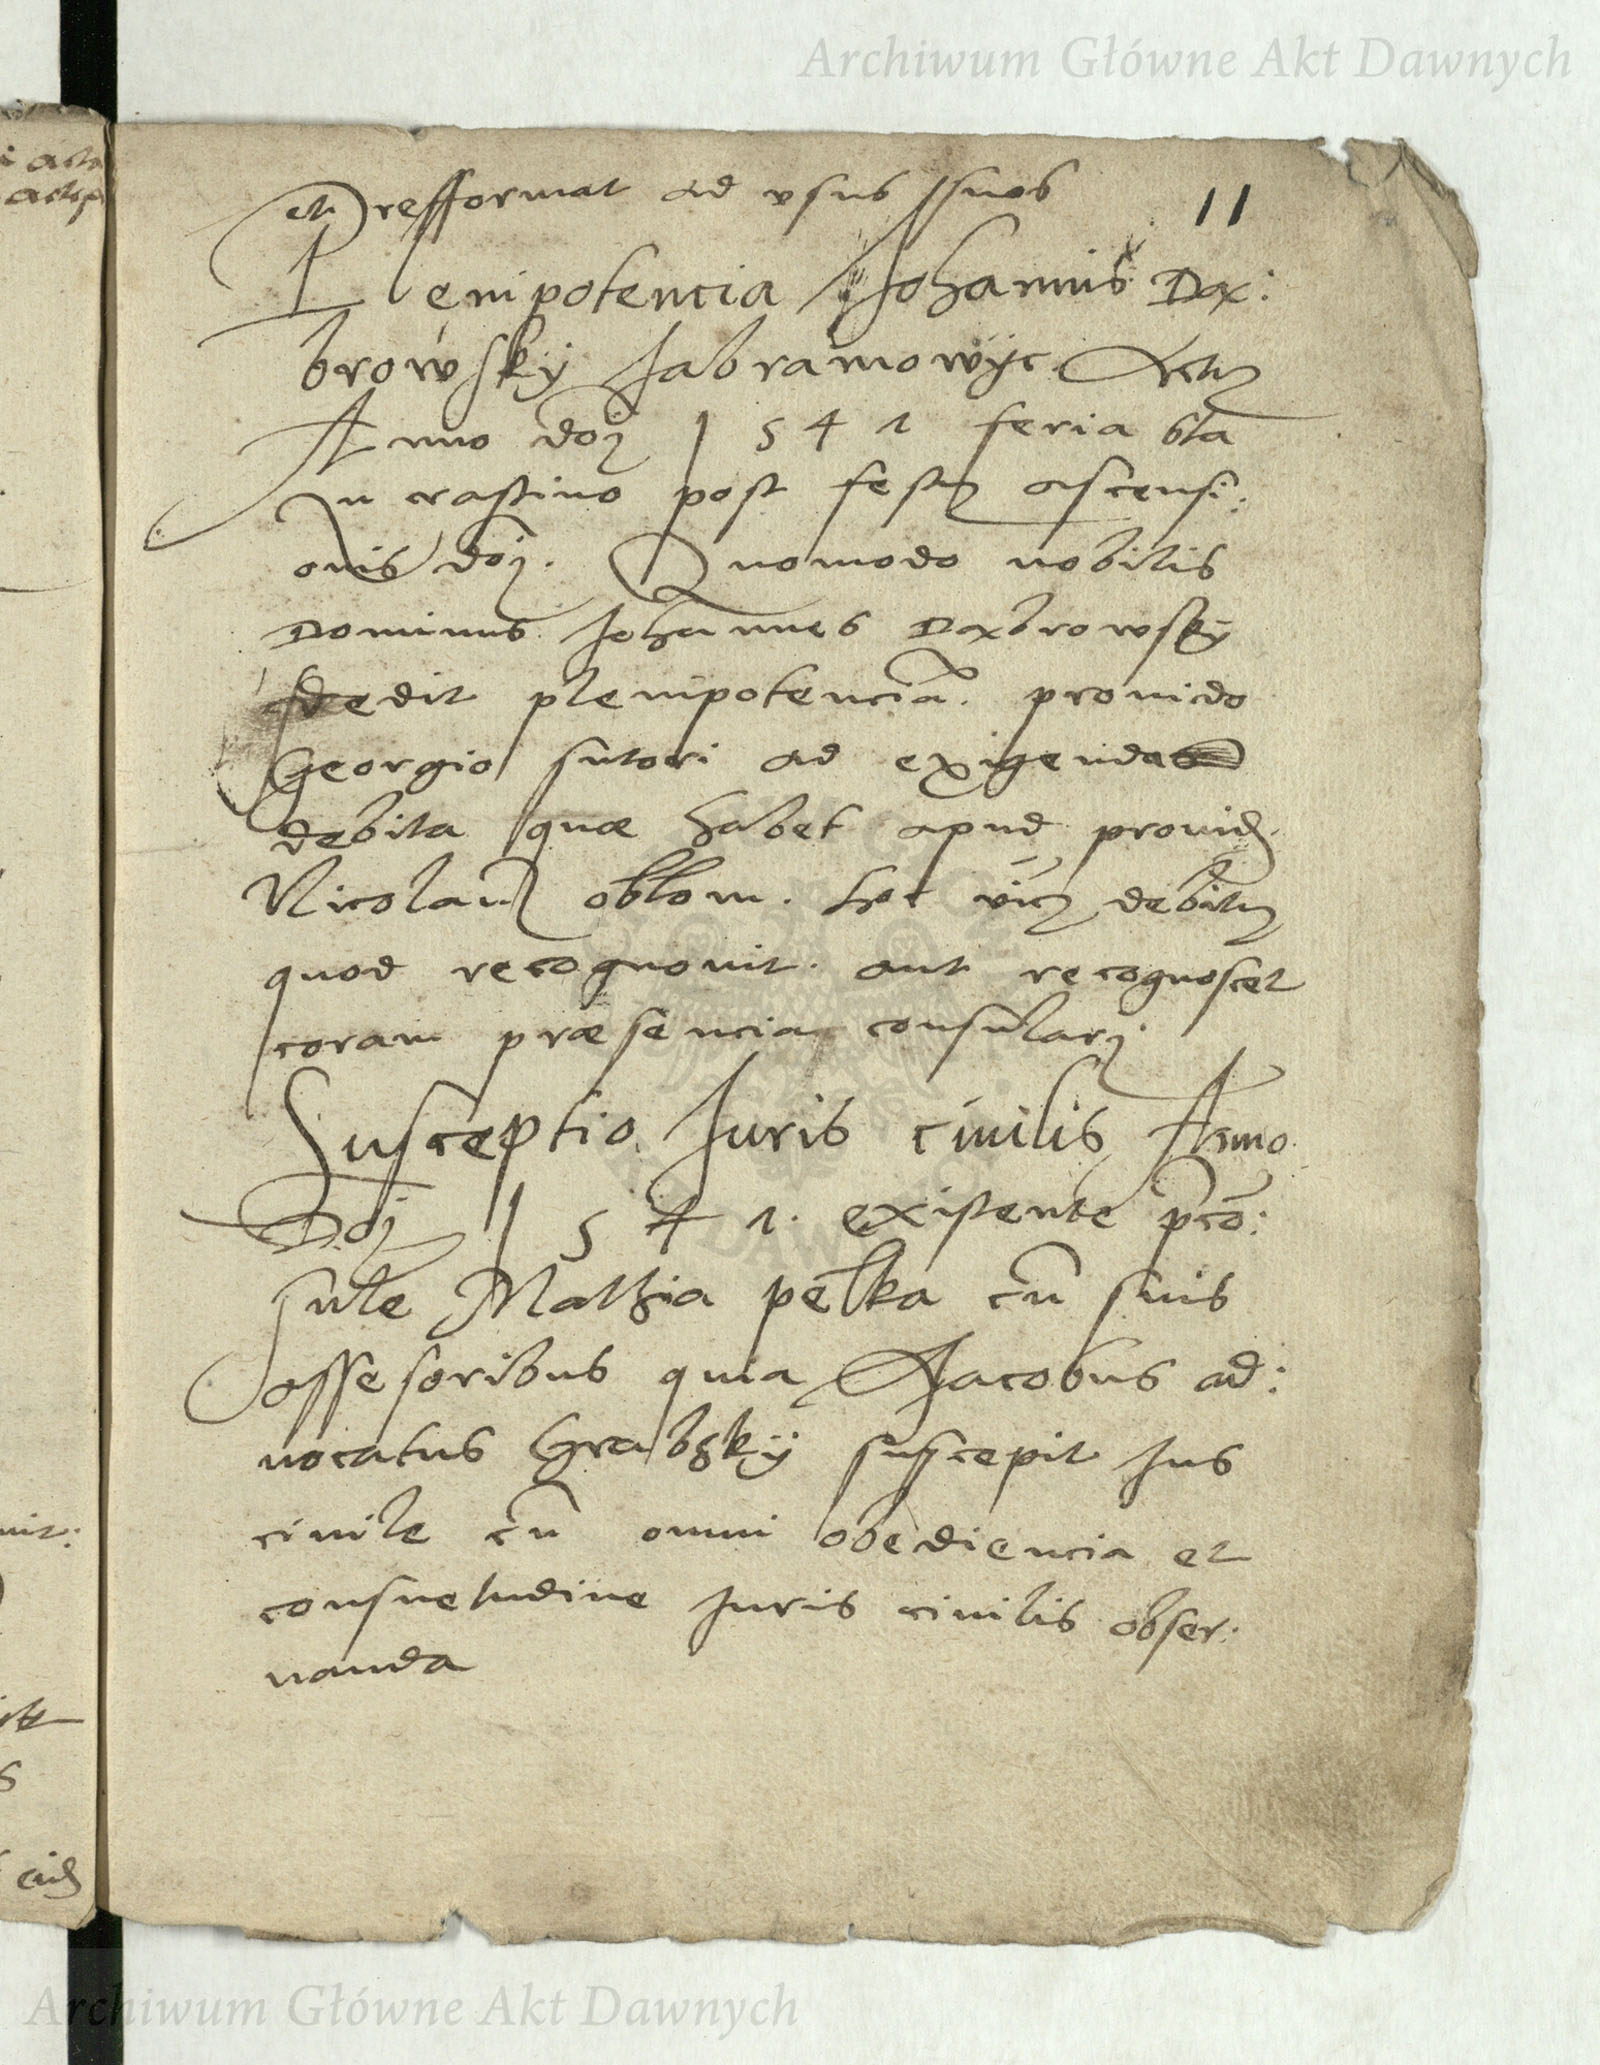 Archiwum Główne Akt Dawnych
et refformat ad vsus suos
11
Plenipotencia Johannis Dax:
browsky Jabramowyc Actum
Anno doj 1541 feria 6ta
In crastino post festum ascensi:
onis doj. Quomodo nobilis
Dominus Johannes Daxbrowsky
dedit plenipotenciã. prouido
Georgio sutori ad exigenda
debita quæ habet apud prouid.
Nicolaum oblom. hoc debitum
quod recognouit. aut recognoscet
coram præsencia consularj
Susceptio Juris ciuilis Anno
Doj 1541. existente pco:
sule Mathia pelka cũ suis
assesoribus quia Jacobus ad:
uocatus Grabsky suscepit Jus
ciuile cũ omni obediencia et
consuetudine Juris ciuilis obser:
uanda
Archiwum Główne Akt Dawnych